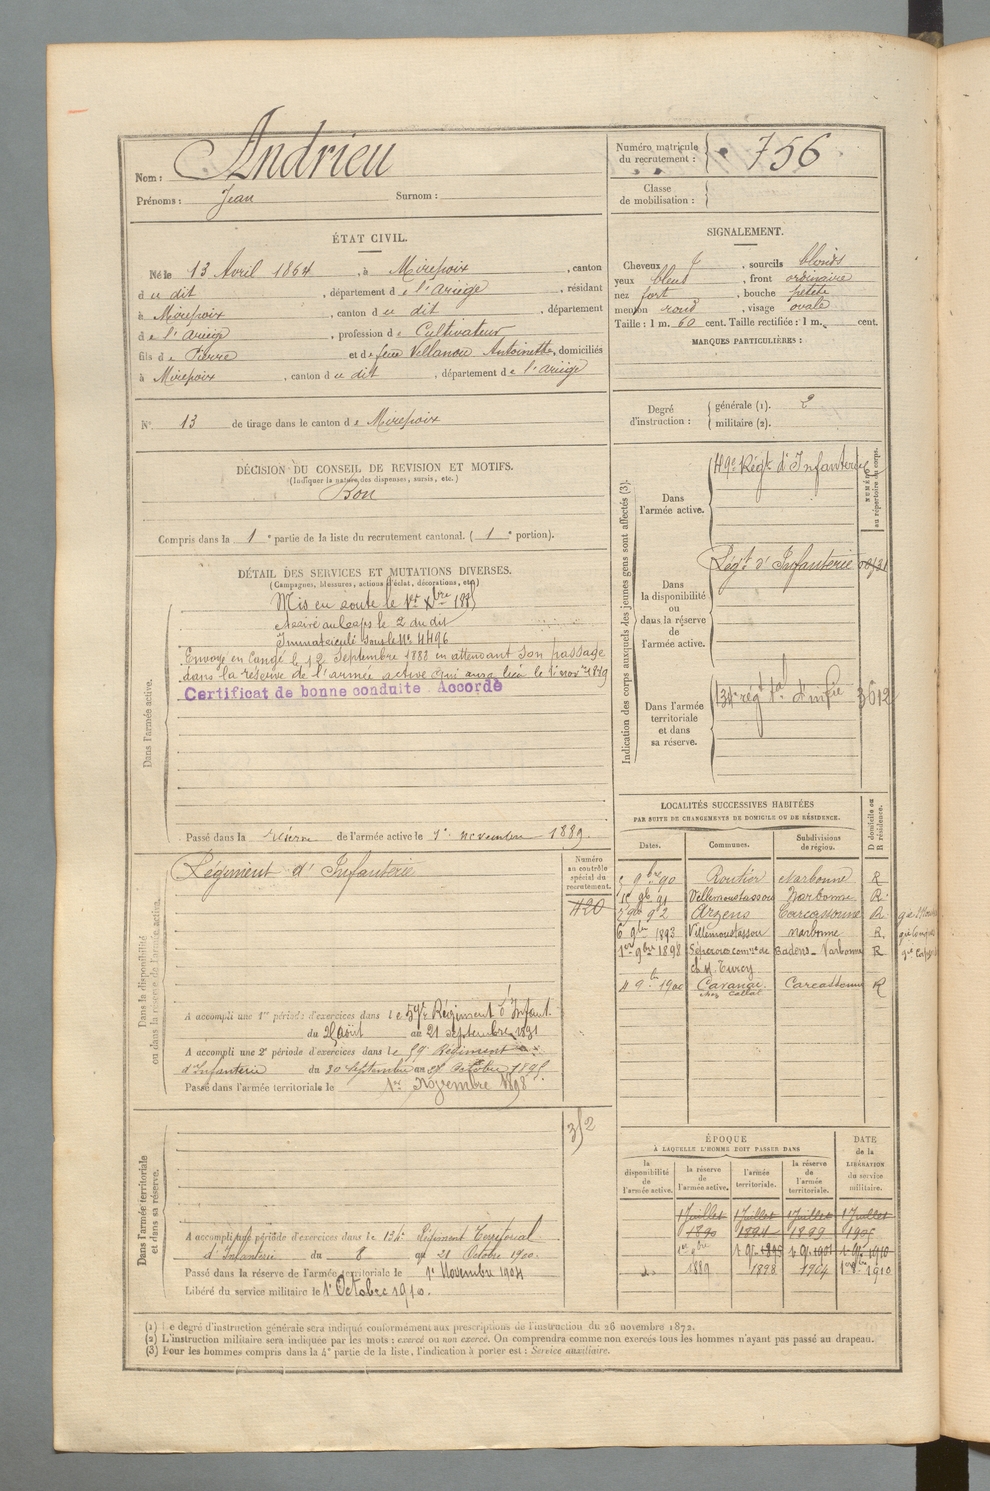 Nom : Andrieu
Prénoms : Jean Surnom :
Numéro matricule du recrutement : 756
Classe de mobilisation :
ÉTAT CIVIL.
Né le 13 Avril 1864, à Mirepoix, canton
du dit, département de l'Ariège, résidant
à Mirepoix, canton du dit, département
de l'Ariège, profession de Cultivateur
fils de Pierre et de feue Villanou Antoinette, domiciliés
à Mirepoix, canton du dit, département de l'Ariège
N° 13 de tirage dans le canton de Mirepoix
SIGNALEMENT.
Cheveux, sourcils blonds
yeux bleus, front ordinaire
nez fort, bouche petite
menton rond, visage ovale
Taille : 1 m. 60 cent. Taille rectifiée : 1 m. cent.
MARQUES PARTICULIÈRES :
Degré d'instruction : générale (1). 2
militaire (2).
DÉCISION DU CONSEIL DE REVISION ET MOTIFS.
(Indiquer la nature des dispenses, sursis, etc.)
Bon
Compris dans la 1e partie de la liste du recrutement cantonal. (1e portion).
DÉTAIL DES SERVICES ET MUTATIONS DIVERSES.
(Campagnes, blessures, actions d'éclat, décorations, etc.)
Dans l'armée active.
Mis en route le 1er Xbre 1885
Arrivé au Corps le 2 du dit
Immatriculé sous le No 4496
Envoyé en Congé le 12 Septembre 1888 en attendant son passage
dans la réserve de l'armée active qui aura lieu le 1er novre 1889
Certificat de bonne conduite Accordé
Passé dans la réserve de l'armée active le 1er novembre 1889.
Indication des corps auxquels les jeunes gens sont affectés (3).
NUMÉRO au répertoire du corps.
Dans l'armée active.
49e Régt d'Infanterie
Dans la disponibilité ou dans la réserve de l'armée active.
Régt d'Infanterie
Dans l'armée territoriale et dans sa réserve.
134e regt tal d'infie 3612
LOCALITÉS SUCCESSIVES HABITÉES
PAR SUITE DE CHANGEMENTS DE DOMICILE OU DE RÉSIDENCE.
Dates. Communes. Subdivisions de région. D domicile ou R résidence.
9bre 90 Routier Narbonne R
9b 91 Villemoustassou Narbonne R
9bre 92 Argens Carcassonne R
6 9bre 1893 Villemoustassou Narbonne R
1er 9bre 1898 Badens Narbonne R
4 9bre 1900 Cavanac Carcassonne R
Dans la disponibilité ou dans la réserve de l'armée active.
Régiment d'Infanterie
Numéro au contrôle spécial du recrutement.
420
A accompli une 1re période d'exercices dans le Régiment d'Infant.
du août au 21 septembre 1891
A accompli une 2e période d'exercices dans le 59e Régiment
d'Infanterie du 30 septembre au octobre 1895.
Passé dans l'armée territoriale le 1er Novembre 1898
Dans l'armée territoriale et dans sa réserve.
A accompli une période d'exercices dans le 134e Régiment Territorial
d'Infanterie du 8 au 21 Octobre 1900.
Passé dans la réserve de l'armée territoriale le 1er Novembre 1904
Libéré du service militaire le 1er Octobre 1910.
ÉPOQUE
À LAQUELLE L'HOMME DOIT PASSER DANS
la disponibilité de l'armée active. la réserve de l'armée active. l'armée territoriale. la réserve de l'armée territoriale.
DATE de la LIBÉRATION du service militaire.
1 Juillet 1 Juillet 1 Juillet 1 Juillet
1889 1898 1904 1910
(1) Le degré d'instruction générale sera indiqué conformément aux prescriptions de l'instruction du 26 novembre 1872.
(2) L'instruction militaire sera indiquée par les mots : exercé ou non exercé. On comprendra comme non exercés tous les hommes n'ayant pas passé au drapeau.
(3) Pour les hommes compris dans la 4e partie de la liste, l'indication à porter est : Service auxiliaire.